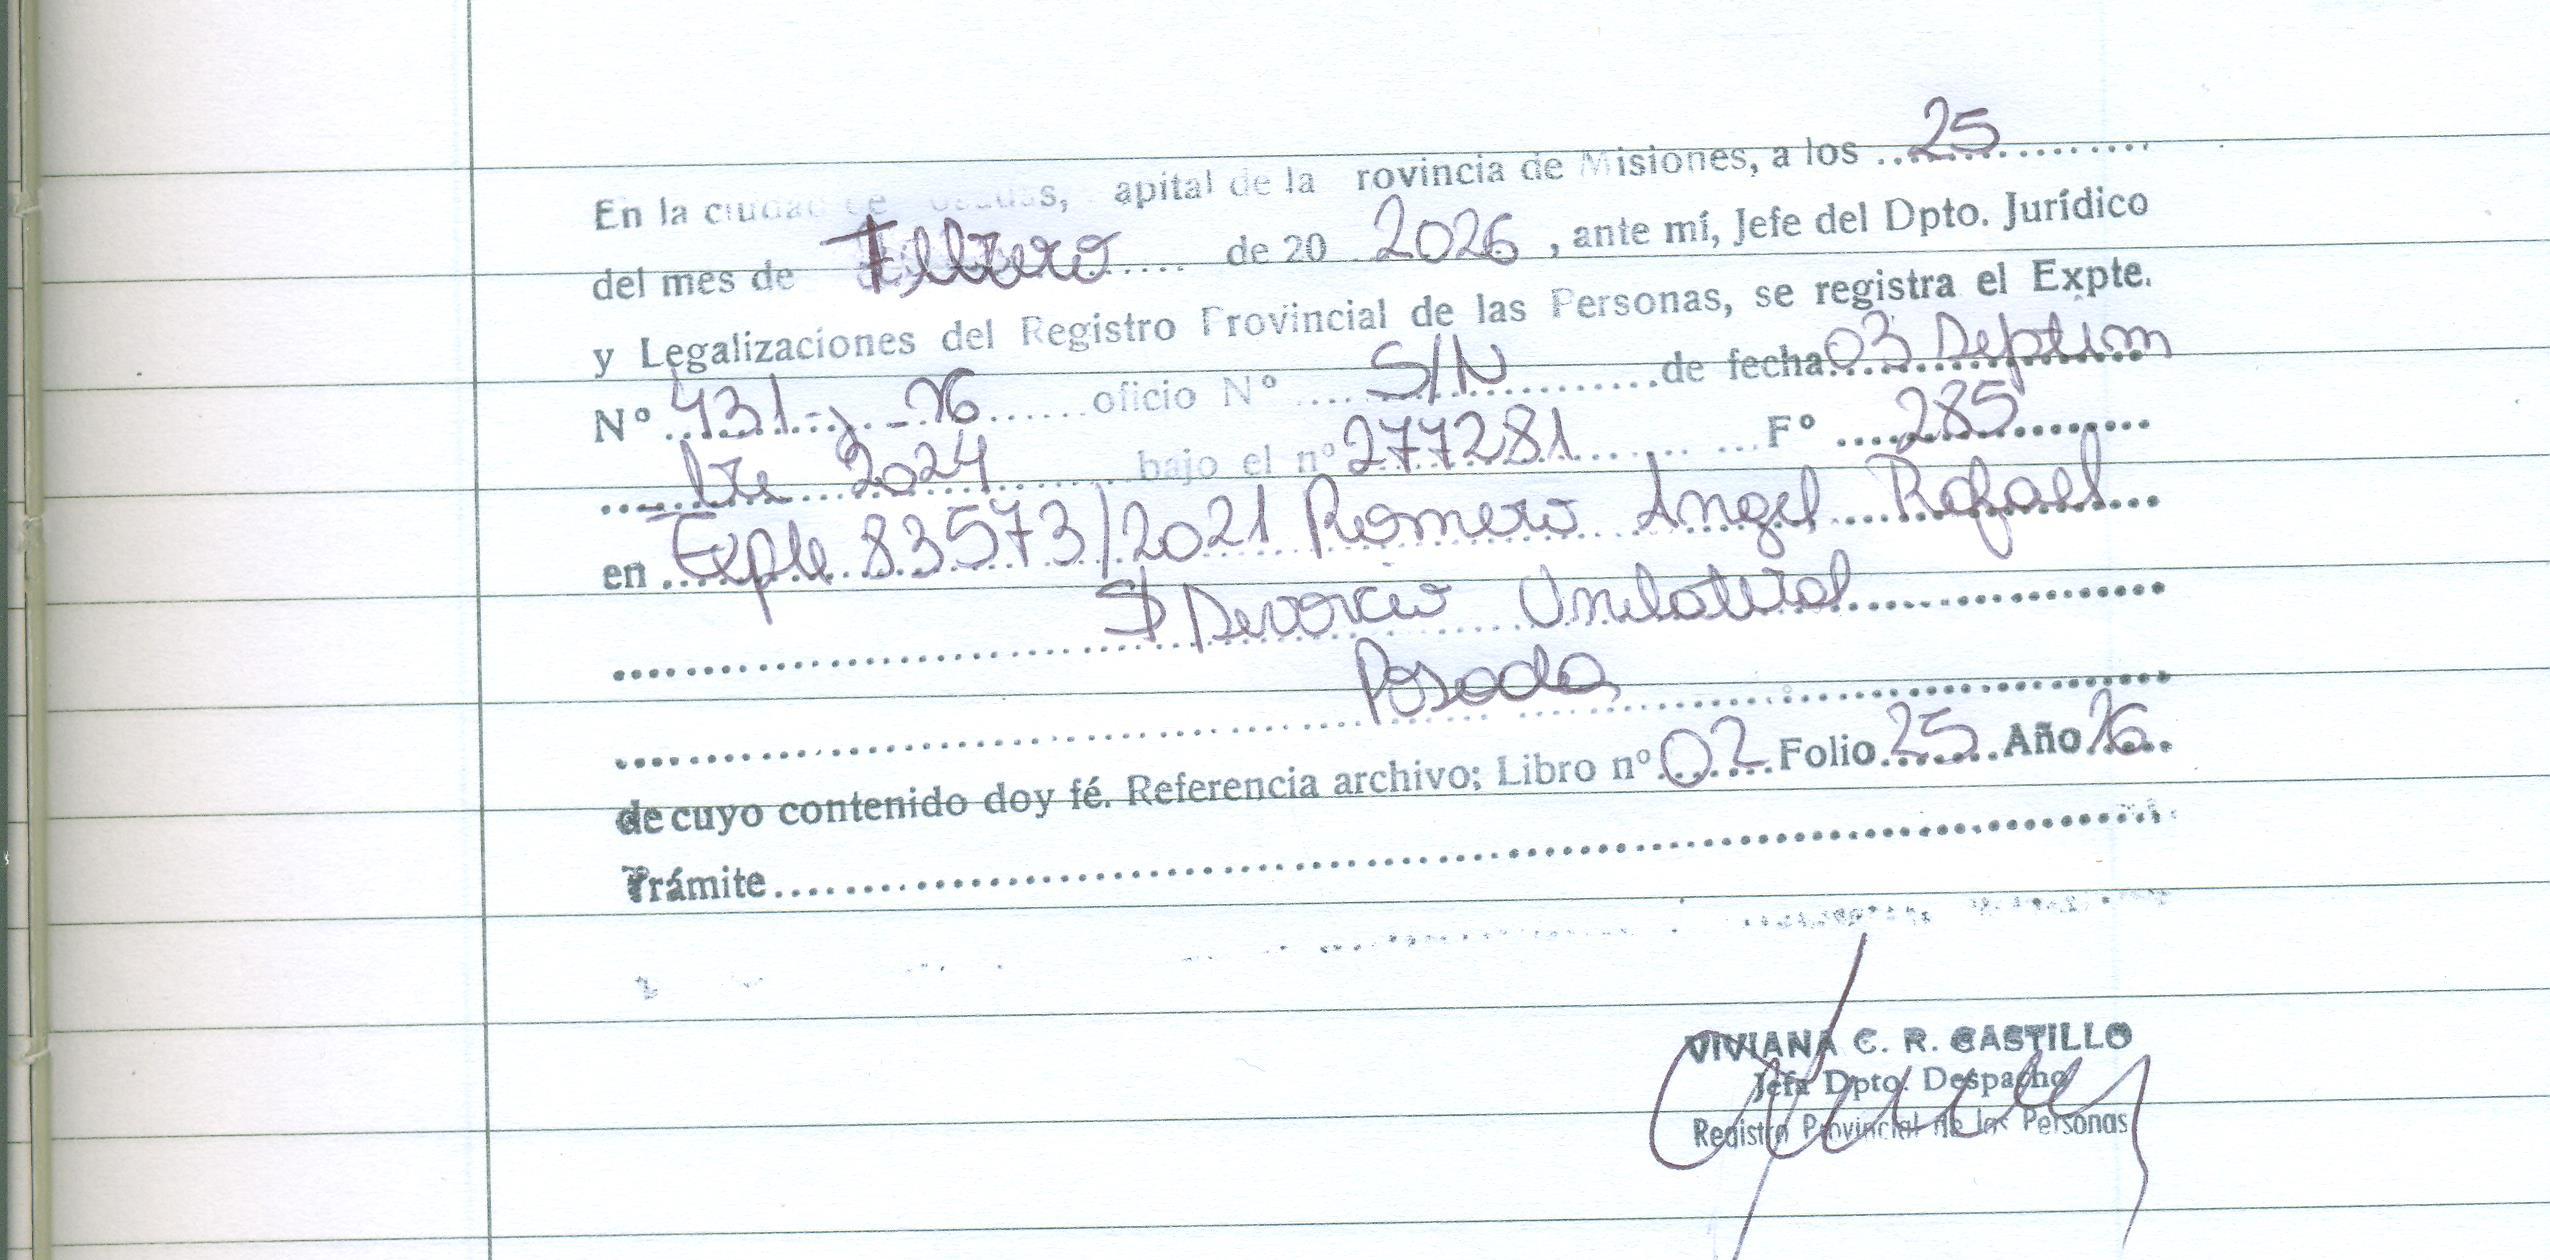 En la ciudad de Posadas, apital de la rovincia de Misiones, a los 25
del mes de Febrero de 20 2026, ante mí, Jefe del Dpto. Jurídico
y Legalizaciones del Registro Provincial de las Personas, se registra el Expte.
N° 431-, -26 oficio N° S/N de fecha 03 Septiem
bre 2024 bajo el n° 277281 F° 285
en Expte 83573/2021 Romero Angel Rafael
S/ Divorcio Unilateral
Posadas
de cuyo contenido doy fé. Referencia archivo; Libro n° 02 Folio 25 Año 26
Trámite
VIVIANA C. R. CASTILLO
Jefa Dpto. Despacho
Registro Provincial de las Personas